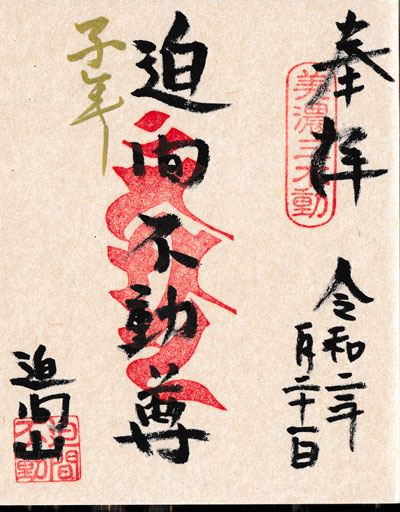 奉拝
美濃三不動
令和二年
月二十一日
迫間不動尊
子年
迫间山
迫間不動